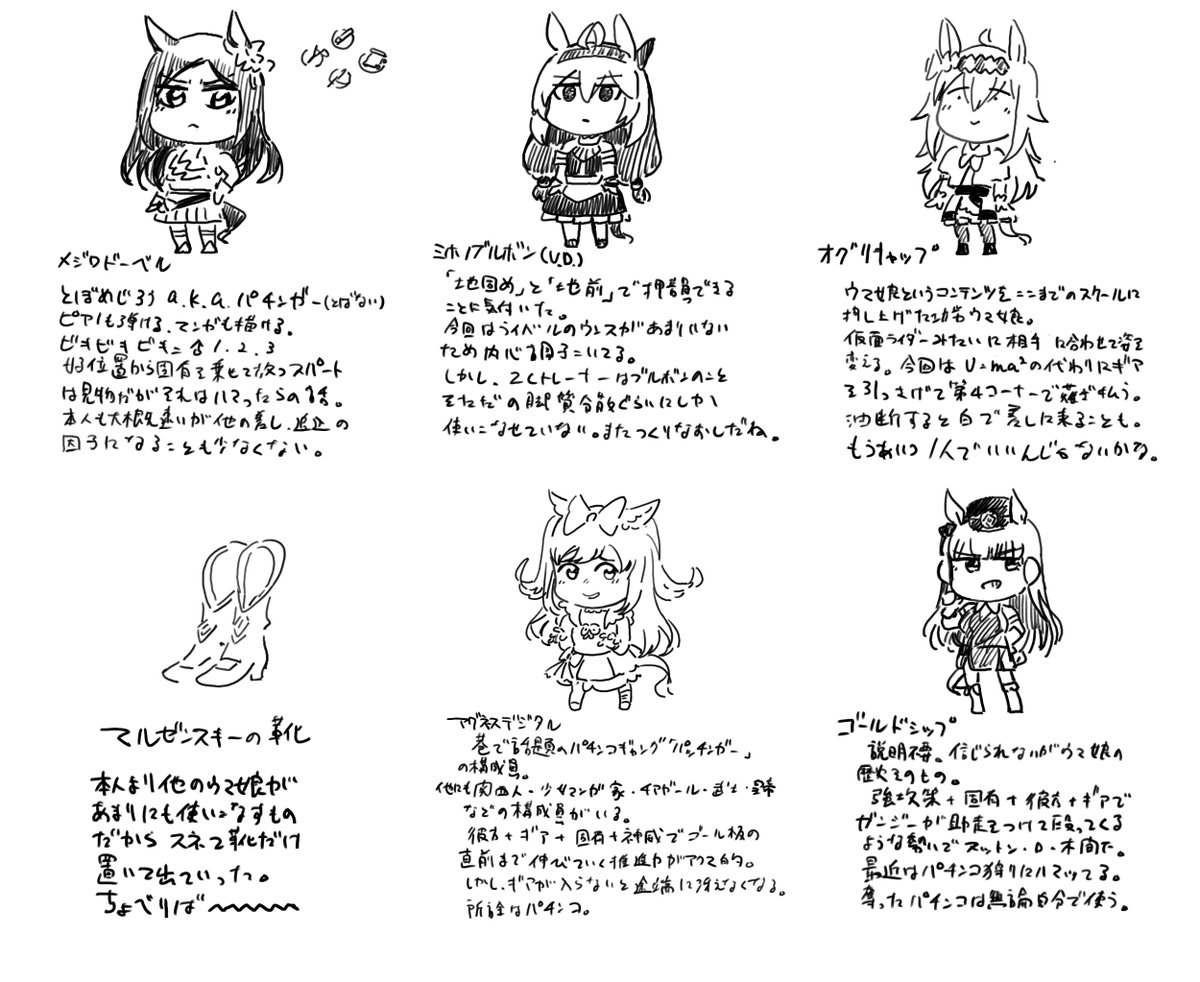 メジロドーベル
とぼめじろう a.k.a. パチンガー(とばない)
ピアノも弾ける、マンガも描ける。
ビキビキビキニ 1.2.3
好位置から固有を乗せて放つスパート
は見物だがそれはハマったらの話。
本人も大概速いが他の差し、追込の
因子になることも少なくない。
ミホノブルボン(U.D.)
「地固め」と「地前」で押
ことに気付いた。
今回はライバルのウンスがあまりいない
ため内心調子こいてる。
しかし、エCトレーナーはブルボンのこと
まだただの脚質分散ぐらいにしか
使いこなせていない。またつくりなおしだね。
オグリキャップ
ウマ娘というコンテンツをここまでのスケールに
押し上げたウマ娘。
仮面ライダーみたいに相手に合わせて姿を
変える。今回はU=ma²の代わりにギア
を引っさげて第4コーナーで薙ぎ払う。
油断すると白で差しに来ることも。
もうあいつ1人でいいんじゃないかな。
マルゼンスキーの靴
本人より他のウマ娘が
あまりにも使いこなすもの
だから スネて靴だけ
置いて出ていった。
ちょべりば〜〜〜
アグネスデジタル
巷で話題のパチンコギャング「パッチンガー」
の構成員。
他にも関西人・少女マンガ家・チアガール・武士・
などの構成員がいる。
彼方+ギア+固有+神威でゴール板の
直前まで伸びていく推進力がアクマ的。
しかし、ギアが入らないと途端に冴えなくなる。
所詮はパチンコ。
ゴールドシップ
説明不要。信じられないがウマ娘の
歴史そのもの。
強攻策+固有+彼方+ギアで
ガンジーが助走をつけて殴ってくる
ような勢いでスットン・D・木間た。
最近はパチンコ狩りにハマってる。
奪ったパチンコは無論自分で使う。